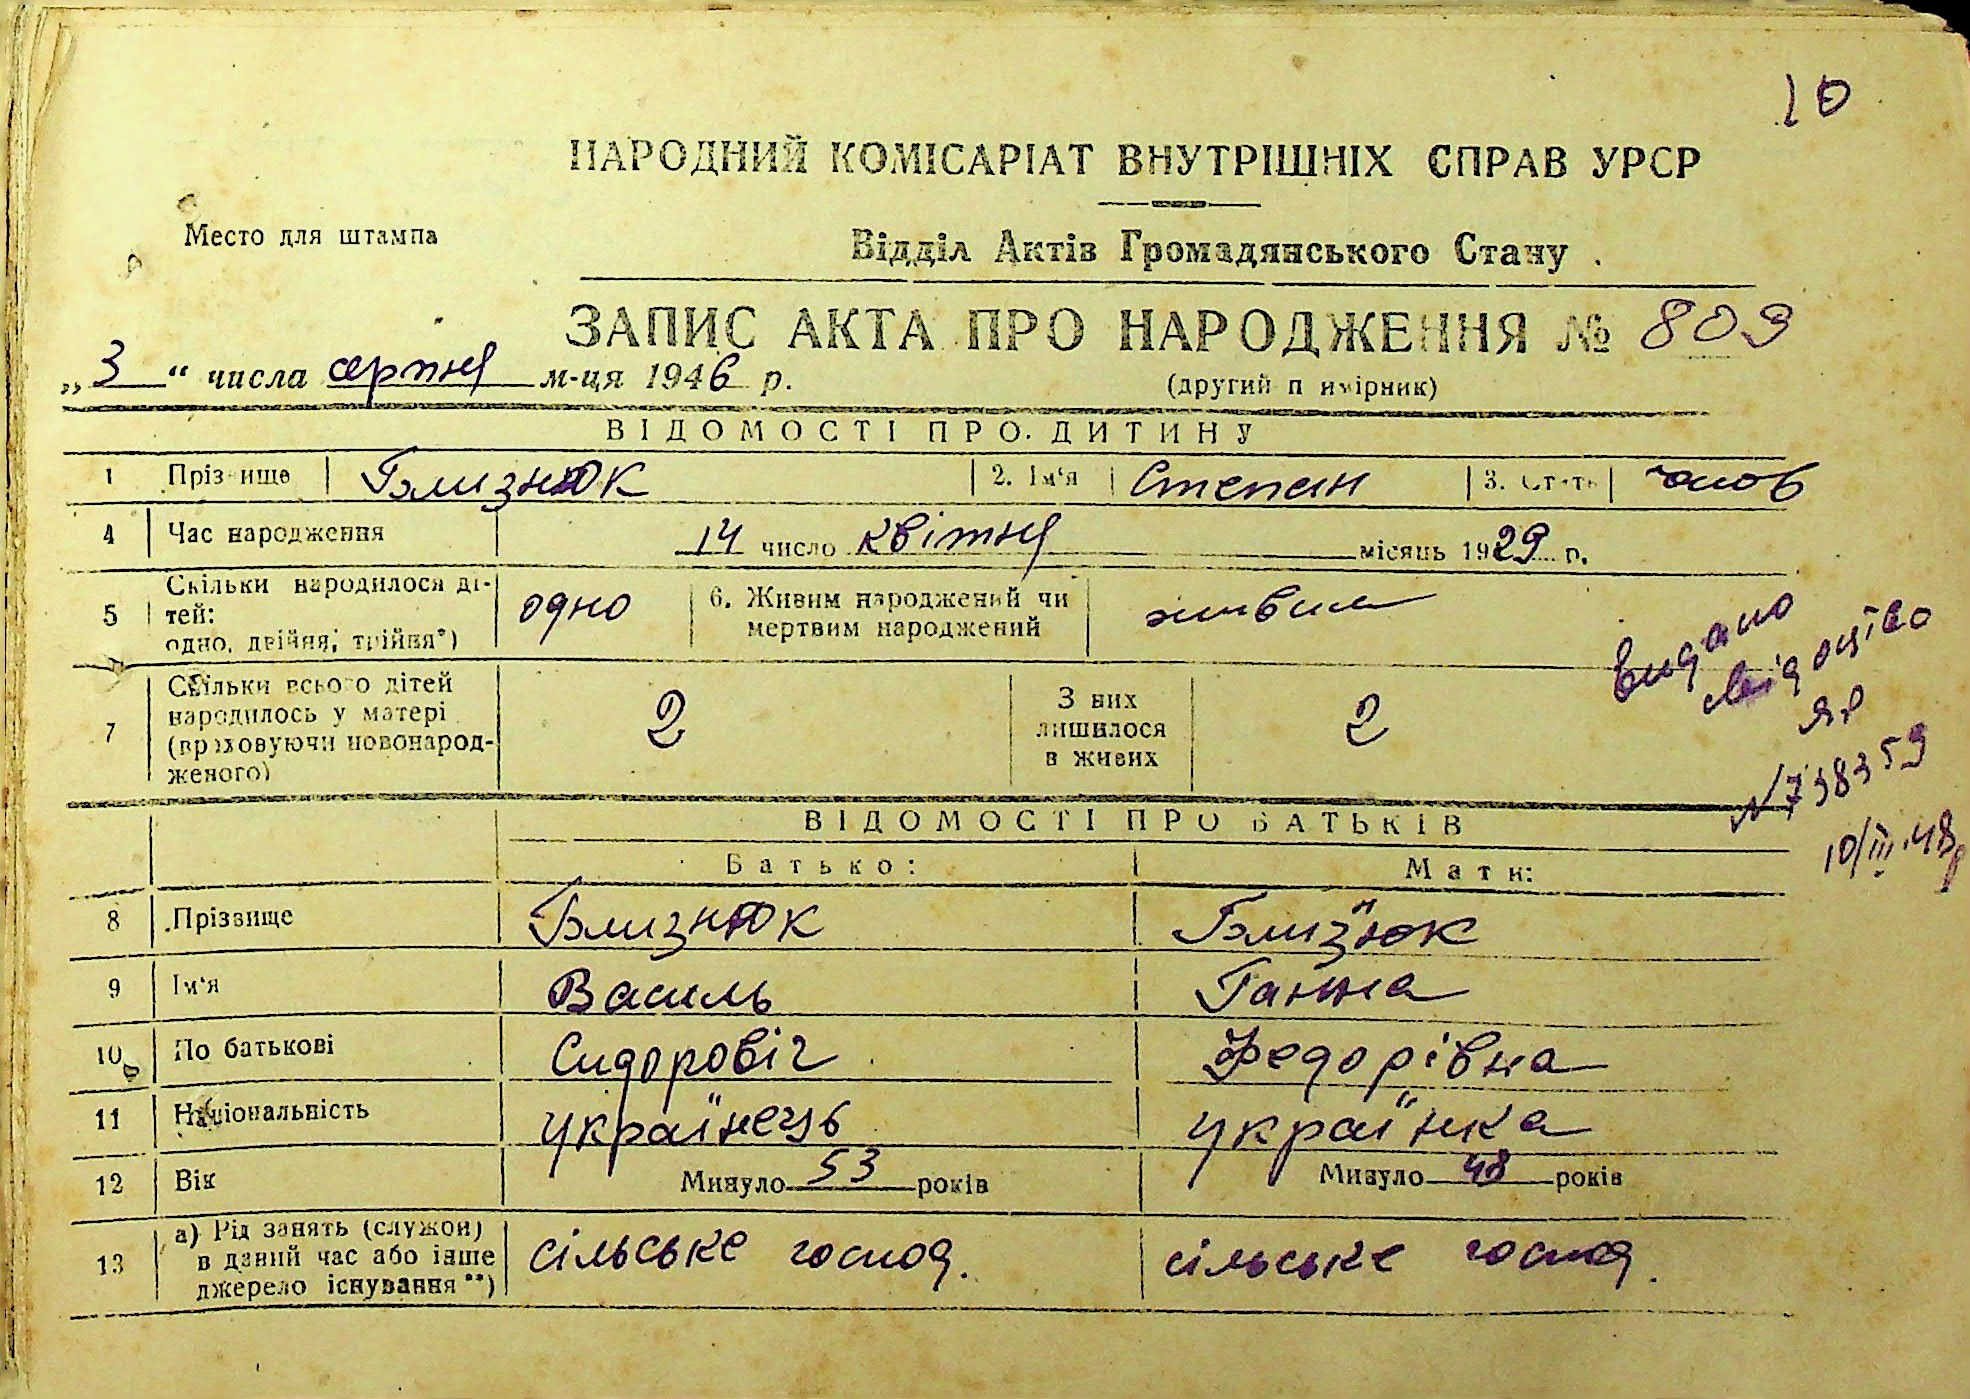 10
НАРОДНИЙ КОМІСАРІАТ ВНУТРІШНІХ СПРАВ УРСР
Место для штампа
Відділ Актів Громадянського Стану
ЗАПИС АКТА ПРО НАРОДЖЕННЯ № 803
„ 3 “ числа серпня м-ця 1946 р.
(другий примірник)
ВІДОМОСТІ ПРО ДИТИНУ
1 Прізвище Близнюк 2. Ім'я Степан 3. Стать чолов
4 Час народження 14 число квітня місяць 1929 р.
5 Скільки народилося ді-
тей:
одно, двійня, трійня*)
одно
6. Живим народжений чи
мертвим народжений
живим
7 Скільки всього дітей
народилось у матері
(враховуючи новонарод-
женого)
2
З них
лишилося
в живих
2
видано
свідоцтво
ЯР
N 738359
10/III.48р
ВІДОМОСТІ ПРО БАТЬКІВ
Батько: Мати:
8 Прізвище Близнюк Близнюк
9 Ім'я Василь Ганна
10 По батькові Сидоровіч Федорівна
11 Національність українець українка
12 Вік Минуло 53 років Минуло 48 років
13 а) Рід занять (служби)
в даний час або інше
джерело існування **)
сільське господ. сільське господ.